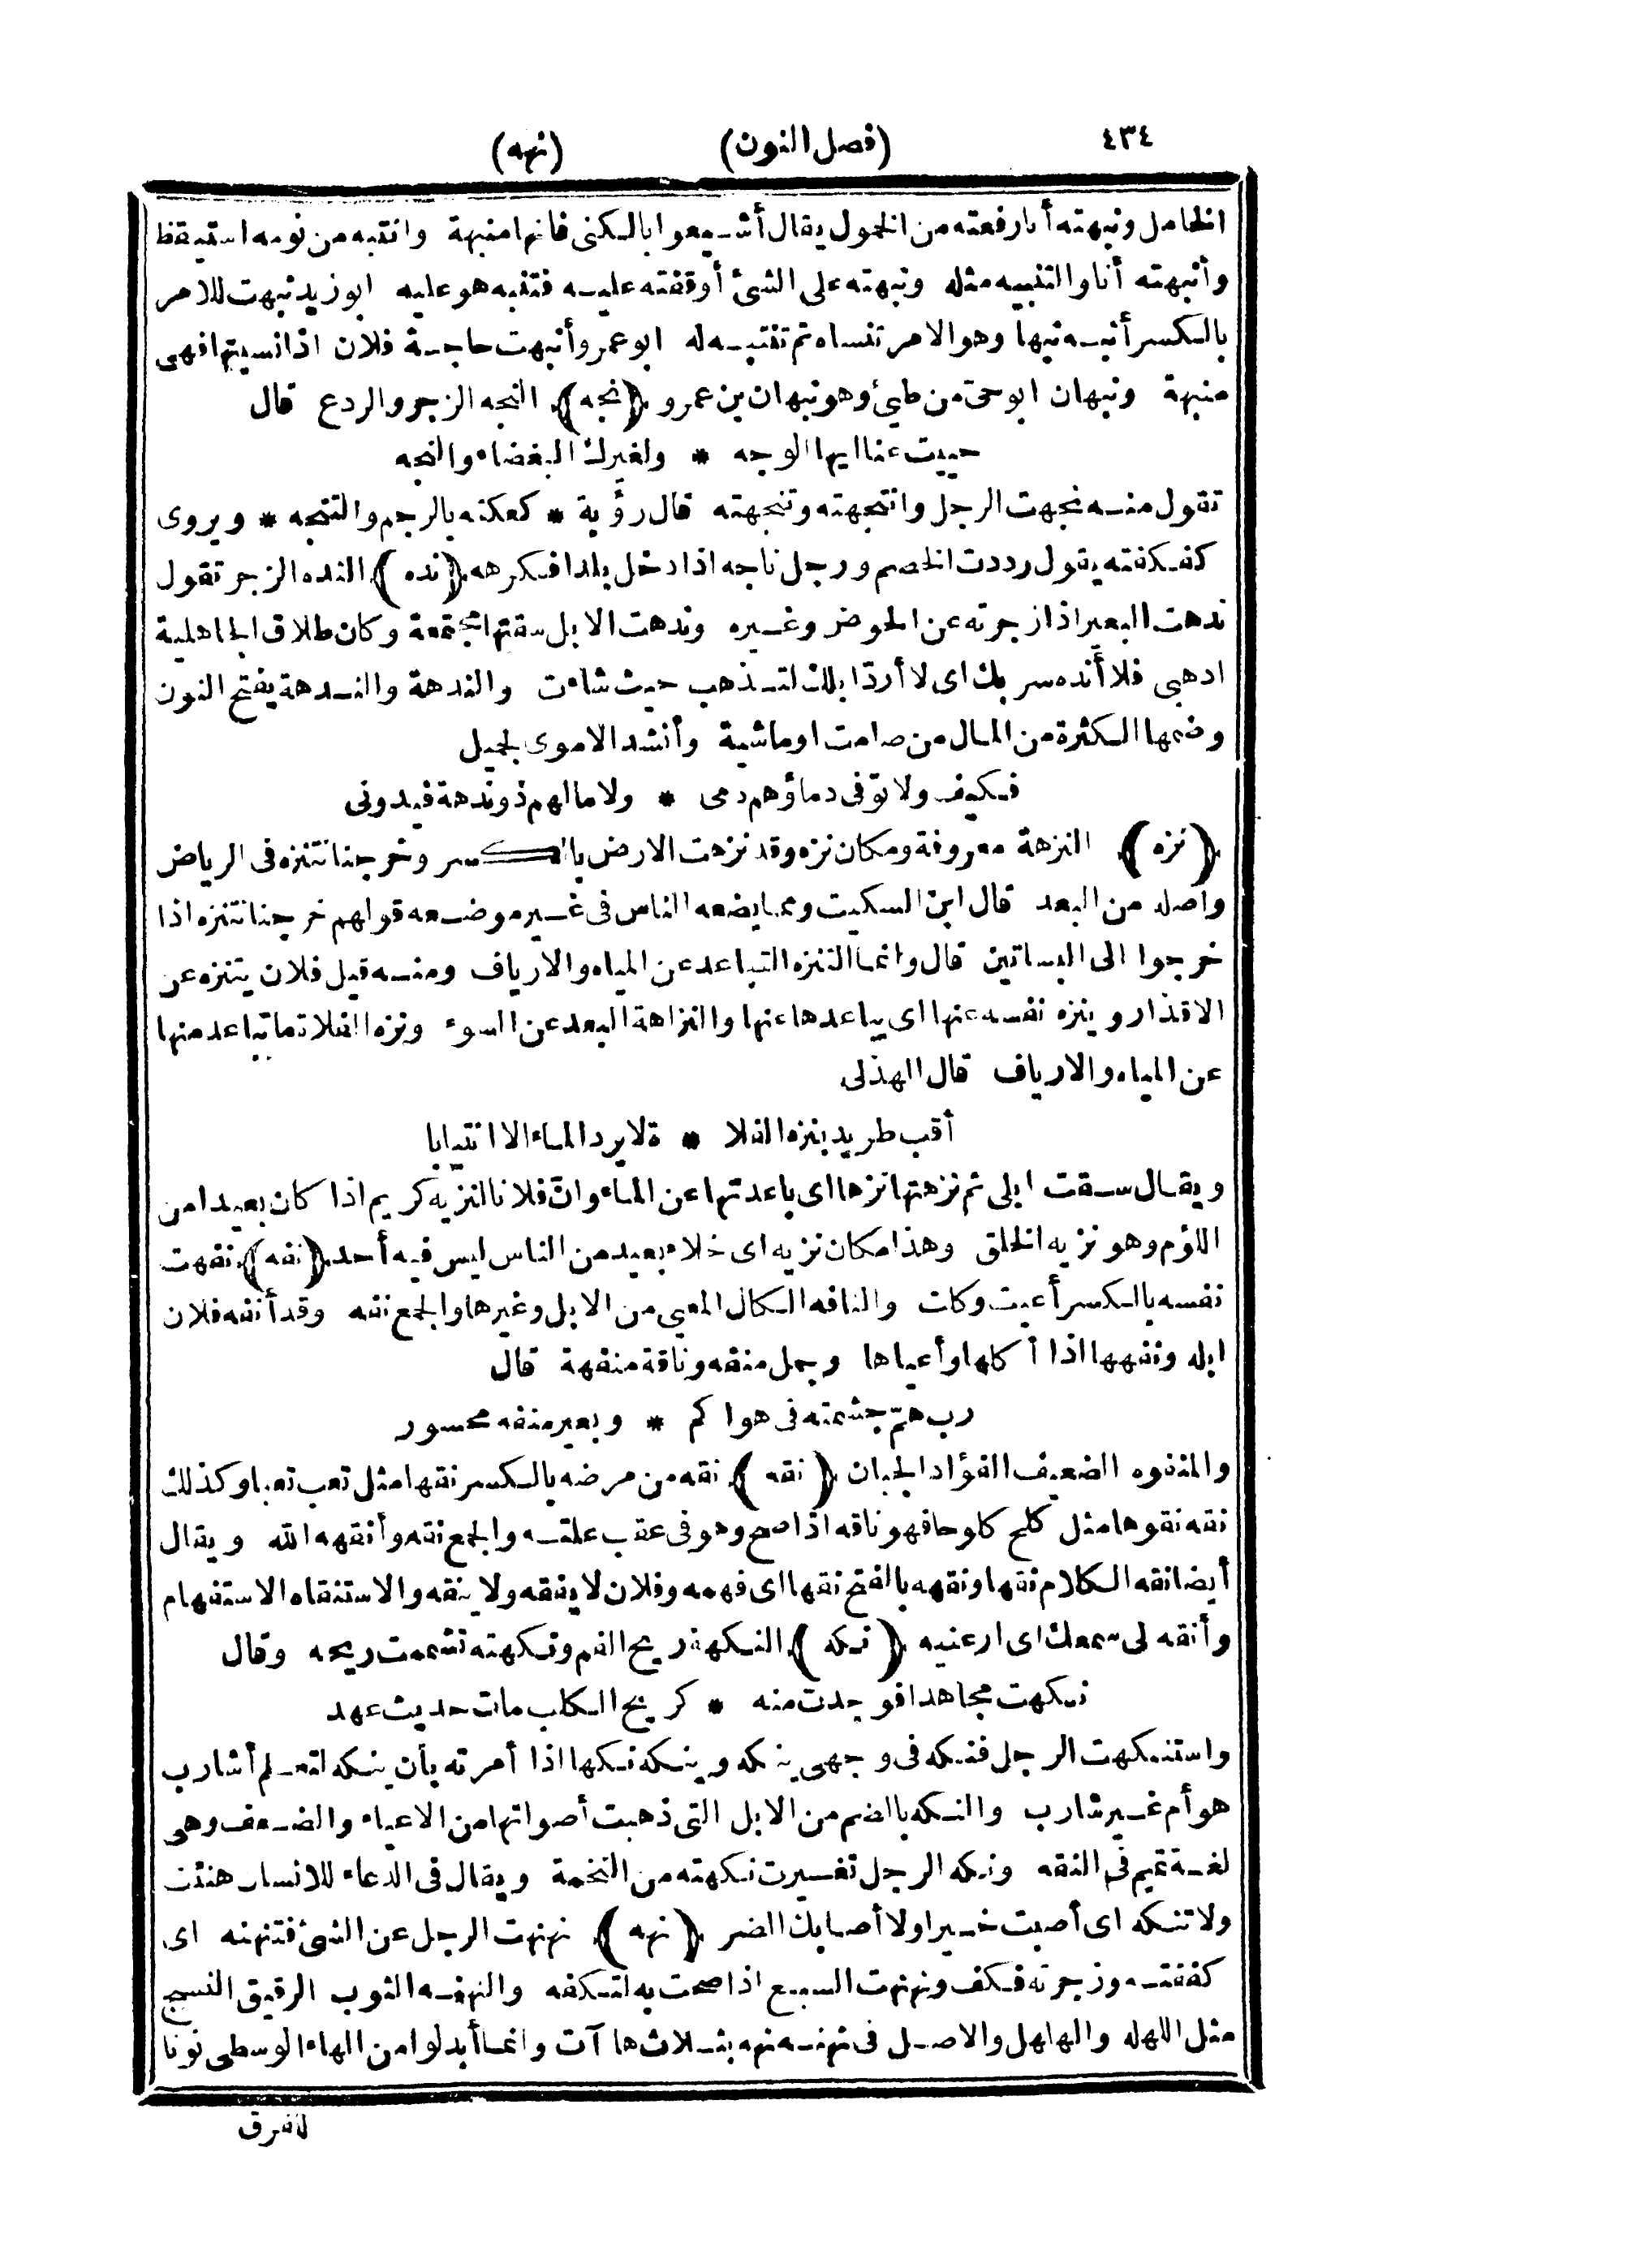 ٤٣٤ (فصل النون) (نهه)
الخامل ونبهته أنا رفعته من الخمول يقال أشيعوا بالكنى فانها منبهة وانتبه من نومه استيقظ
وأنبهته أنا والتنبيه مثله ونبهته على الشئ أوقفته عليه فتنبه هو عليه ابو زيد نبهت للامر
بالكسر أنبه نبها وهو الامر تنساه ثم تنتبه له ابو عمرو أنبهت حاجة فلان اذا نسيتها فهى
منبهة ونبهان ابو حى من طيئ وهو نبهان بن عمرو ﴿نجه﴾ النجه الزجر والردع قال
حييت عنا ايها الوجه * ولغيرك البغضاء والنجه
تقول منه نجهت الرجل وانتجهته وتنجهته قال رؤبة * كعكته بالرجم والتنجه * ويروى
كفكفته يقول رددت الخصم ورجل ناجه اذا دخل بلدا فكرهه ﴿نده﴾ النده الزجر تقول
ندهت البعير اذا زجرته عن الحوض وغيره وندهت الابل سقتها مجتمعة وكان طلاق الجاهلية
ادهبى فلا أنده سربك اى لا أردّ ابلك لتذهب حيث شاءت والندهة والندهة بفتح النون
وضمها الكثرة من المال من صامت او ماشية وأنشد الاموى لجميل
فكيف ولا توفى دماؤهم دمى * ولا مالهم ذو ندهة فيدونى
﴿نزه﴾ النزهة معروفة ومكان نزه وقد نزهت الارض بالكسر وخرجنا نتنزه فى الرياض
واصله من البعد قال ابن السكيت ومما يضعه الناس فى غير موضعه قولهم خرجنا نتنزه اذا
خرجوا الى البساتين قال وانما التنزه التباعد عن المياه والارياف ومنه قيل فلان يتنزه عن
الاقذار وينزه نفسه عنها اى يباعدها عنها والنزاهة البعد عن السوء ونزه الفلا ما تباعد منها
عن المياه والارياف قال الهذلى
أقب طريد بنزه الفلا * ة لا يرد الماء الا انتيابا
ويقال سقت ابلى ثم نزهتها نزها اى باعدتها عن الماء وانّ فلانا لنزيه كريم اذا كان بعيدا من
اللؤم وهو نزيه الخلق وهذا مكان نزيه اى خلاء بعيد من الناس ليس فيه أحد ﴿نفه﴾ نفهت
نفسه بالكسر أعيت وكلت والنافه الكال المعيى من الابل وغيرها والجمع نفه وقد أنفه فلان
ابله ونفهها اذا أكلها وأعياها وجمل منفه وناقة منفهة قال
رب همّ جشمته فى هواكم * وبعير منفه محسور
والمنفوه الضعيف الفؤاد الجبان ﴿نقه﴾ نقه من مرضه بالكسر نقها مثل تعب تعبا وكذلك
نقه نقوها مثل كلح كلوحا فهو ناقه اذا صح وهو فى عقب علته والجمع نقه وأنقهه الله ويقال
أيضا نقه الكلام نقها ونقهه بالفتح نقها اى فهمه وفلان لا يفقه ولا ينقه والاستنقاه الاستفهام
وأنقه لى سمعك اى ارعنيه ﴿نكه﴾ النكهة ريح الفم ونكهته تشممت ريحه وقال
نكهت مجاهدا فوجدت منه * كريح الكلب مات حديث عهد
واستنكهت الرجل فنكه فى وجهى ينكه وينكه نكها اذا أمرته بأن ينكه لتعلم أشارب
هو أم غير شارب والنكه بالضم من الابل التى ذهبت أصواتها من الاعياء والضعف وهى
لغة تميم فى النقه ونكه الرجل تغيرت نكهته من التخمة ويقال فى الدعاء للانسان هنئت
ولا تنكه اى أصبت خيرا ولا أصابك الضر ﴿نهه﴾ نهنهت الرجل عن الشئ فتنهنه اى
كففته وزجرته فكف ونهنهت السبع اذا صحت به لتكفه والنهنه الثوب الرقيق النسج
مثل اللهله والهلهل والاصل فى نهنه نهه بثلاث هاآت وانما أبدلوا من الهاء الوسطى نونا
للفرق